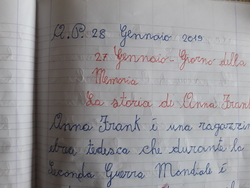 O.P. 28 Gennaio 2019
27 Gennaio - Giorno della
Memoria
La storia di Anna Frank
Anna Frank è una ragazzina
ebrea tedesca che durante la
Seconda Guerra Mondiale è